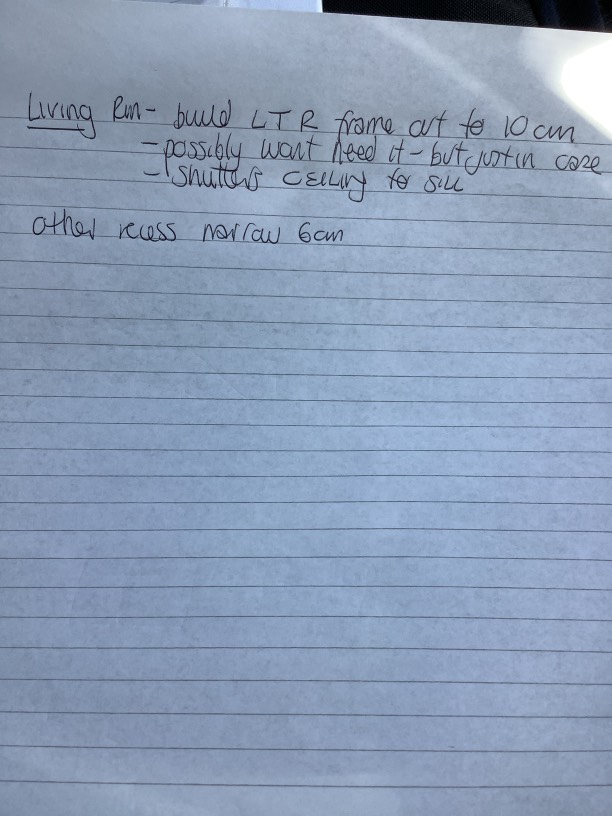 Living Rm - build LTR frame out to 10cm
- possibly want need it - but just in case
- shutters ceiling to sill
other recess narrow 6cm